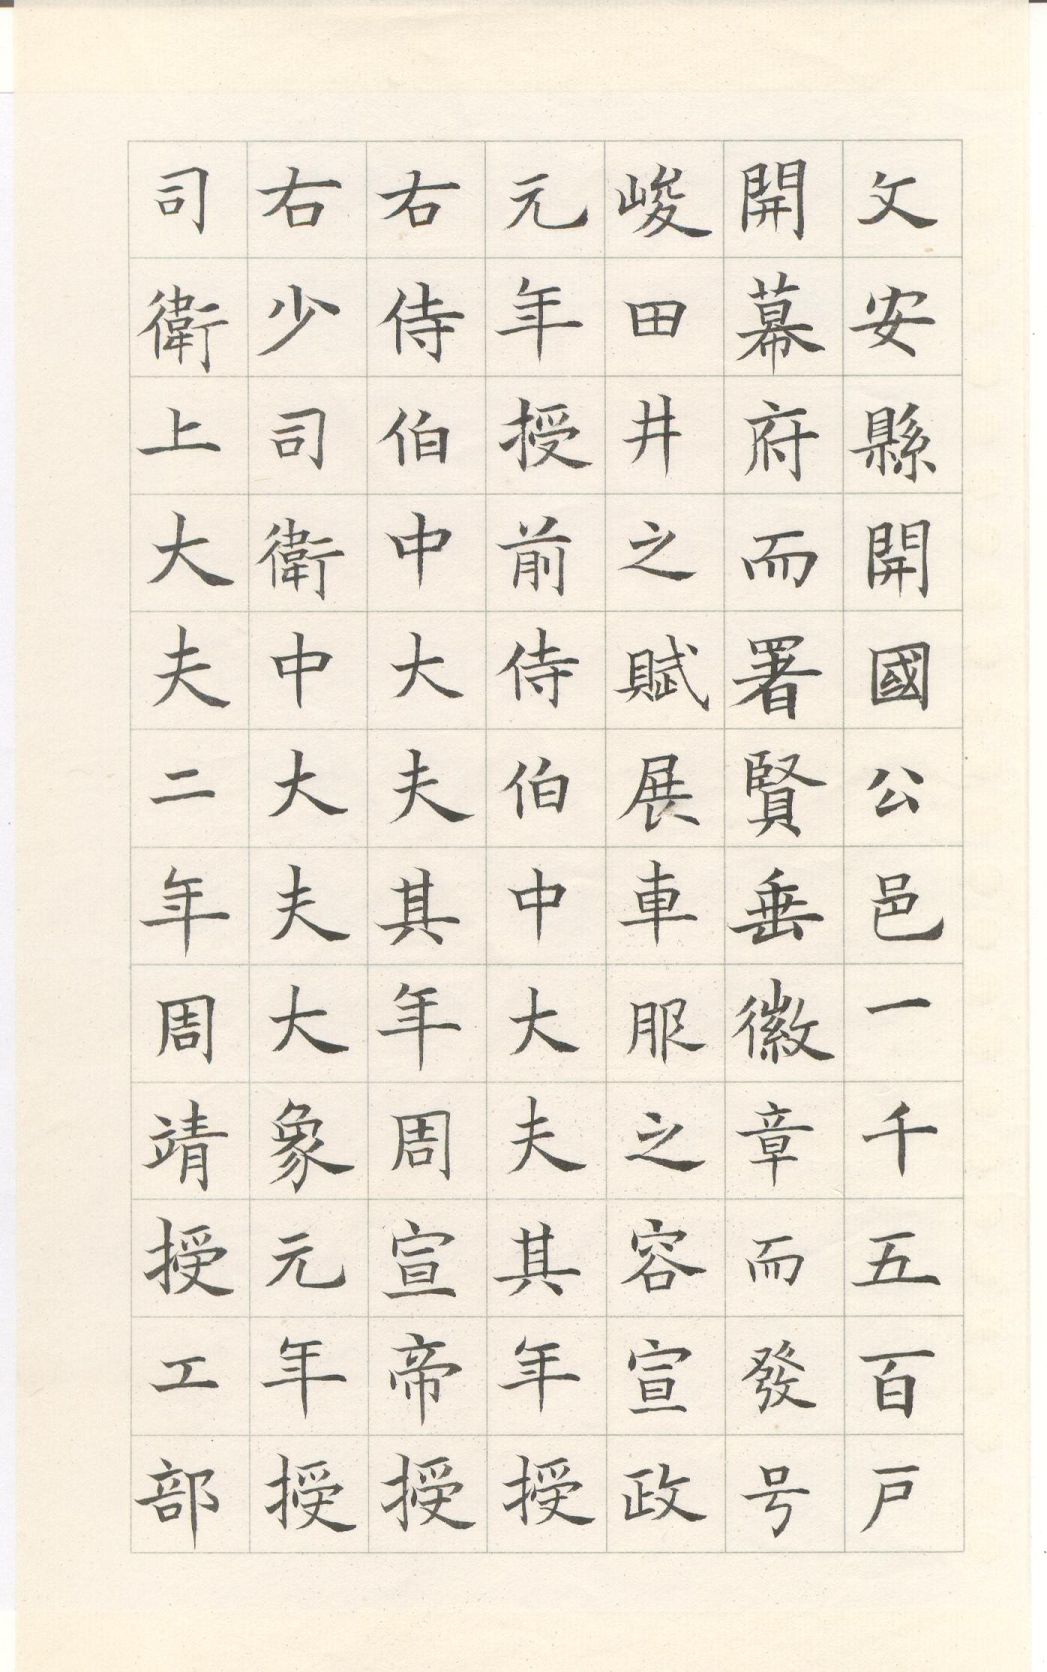 文安縣開國公邑一千五百戸
開幕府而署賢垂徽章而發号
峻田井之賦展車服之容宣政
元年授前侍伯中大夫其年授
右侍伯中大夫其年周宣帝授
右少司衛中大夫大象元年授
司衛上大夫二年周靖授工部